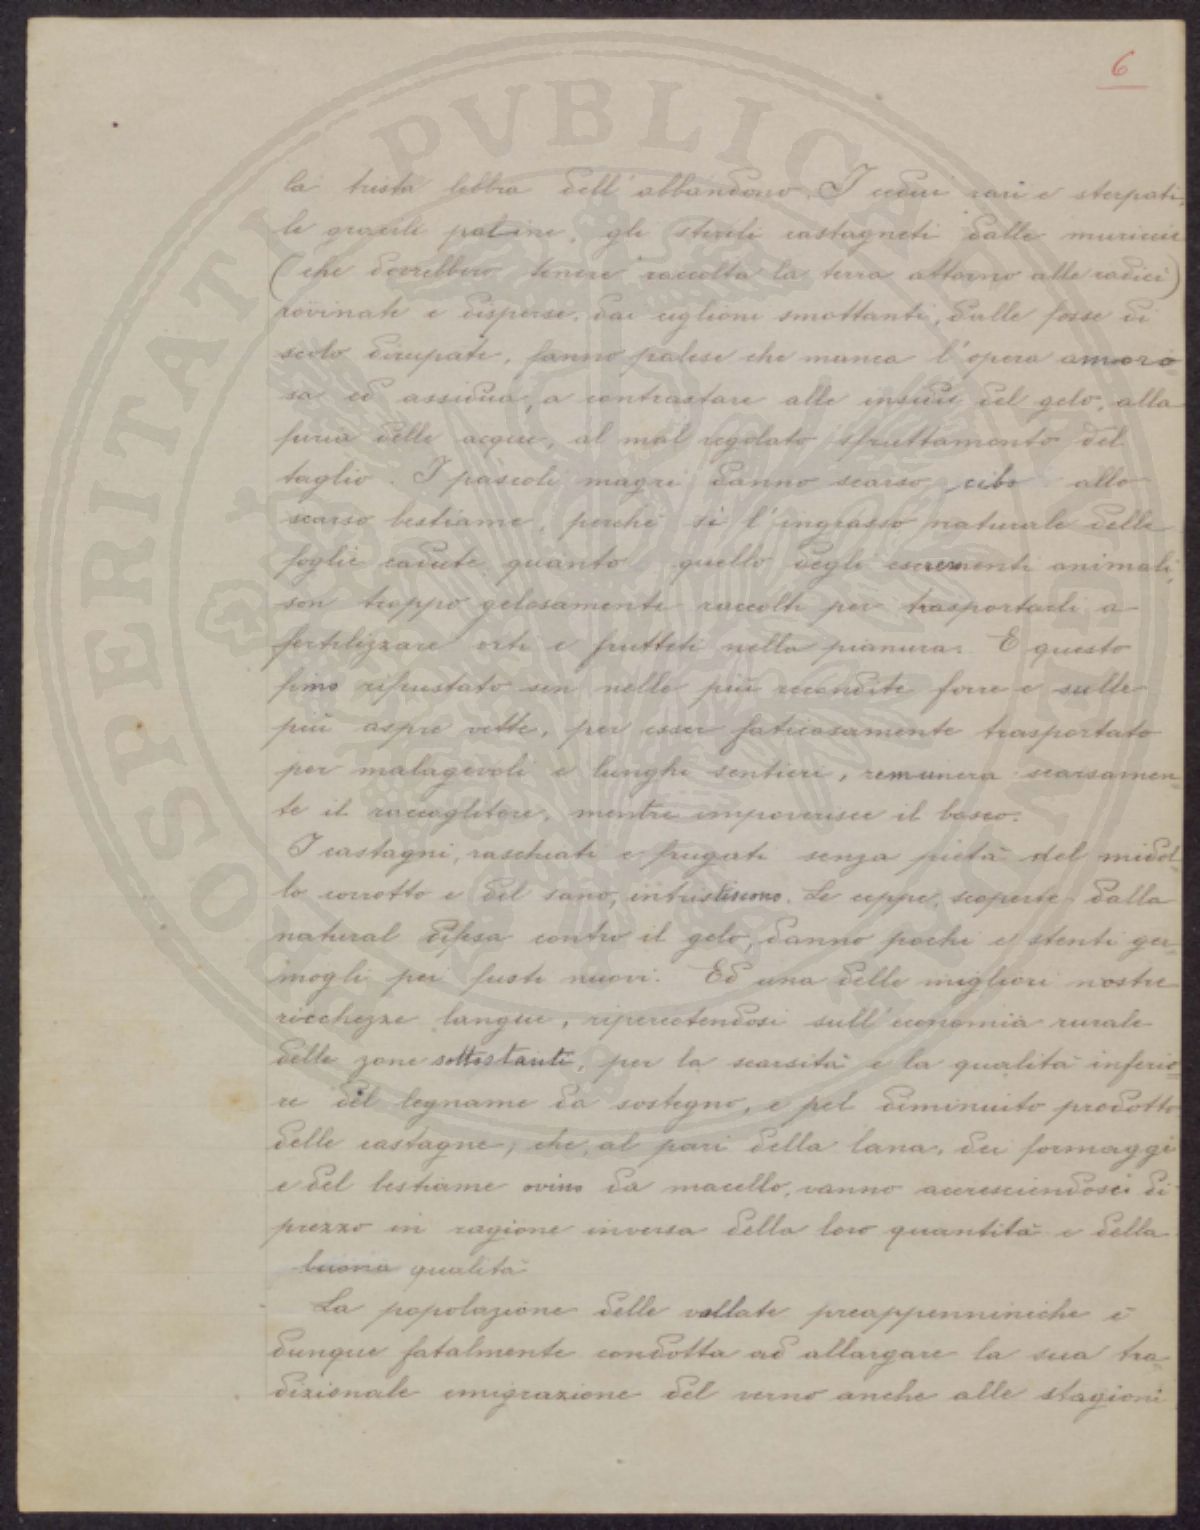 6
la trista lebbra dell'abbandono. I cedui rari e sterpati,
le gracili paline, gli sterili castagneti dalle muriccie
(che dovrebbero tenere raccolta la terra attorno alle radici)
rovinate e disperse, dai ciglioni smottanti, dalle fosse di
scolo dirupate, fanno palese che manca l'opera amoro=
sa ed assidua, a contrastare alle insidie del gelo, alla
furia delle acque, al mal regolato sfruttamento del
taglio. I pascoli magri danno scarso cibo allo
scarso bestiame, perchè sì l'ingrasso naturale delle
foglie cadute quanto quello degli escrementi animali,
son troppo gelosamente raccolti per trasportarli a
fertilizzare orti e frutteti nella pianura. E questo
fimo rifrustato sin nelle più recondite forre e sulle
più aspre vette, per esser faticosamente trasportato
per malagevoli e lunghi sentieri, remunera scarsamen=
te il raccoglitore, mentre impoverisce il bosco.
I castagni, raschiati e frugati senza pietà del midol
lo corrotto e del sano, intristiscono. Le ceppe, scoperte dalla
natural difesa contro il gelo, danno pochi e stenti ger=
mogli pei fusti nuovi. Ed una delle migliori nostre
ricchezze langue, ripercotendosi sull'economia rurale
delle zone sottostanti, per la scarsità e la qualità inferio=
re del legname da sostegno, e pel diminuito prodotto
delle castagne, che, al pari della lana, dei formaggi
e del bestiame ovino da macello, vanno accrescendosi di
prezzo in ragione inversa della loro quantità e della
buona qualità
La popolazione delle vallate preappenniniche è
dunque fatalmente condotta ad allargare la sua tra=
dizionale emigrazione del verno anche alle stagioni
PROSPERITATI PVBLICAE